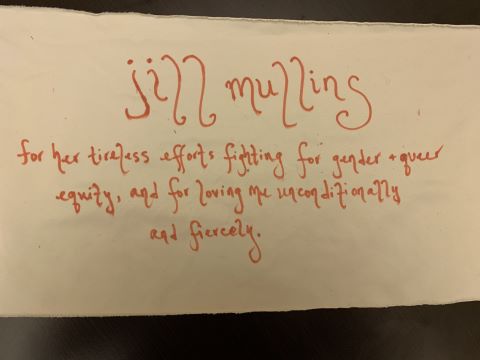 jill mullins
for her tireless efforts fighting for gender + queer
equity, and for loving me unconditionally
and fiercely.